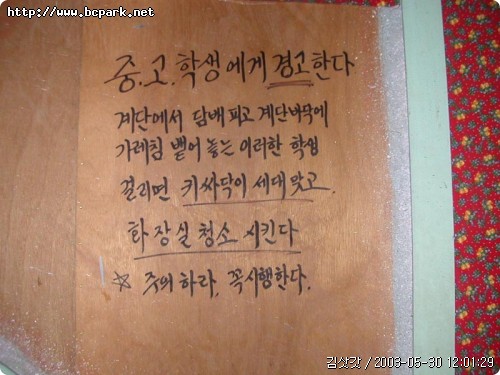 http://www.bcpark.net
중.고.학생에게 경고한다
계단에서 담배피고 계단바닥에
가레침 뱉어 놓는 이러한 학생
걸리면 키싸닥이 세대맞고.
화장실청소 시킨다
☆ 주의하라. 꼭시행한다.
김삿갓 / 2003-05-30 12:01:29